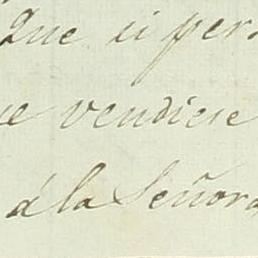 Que si per
ue vendiese
á la Señora